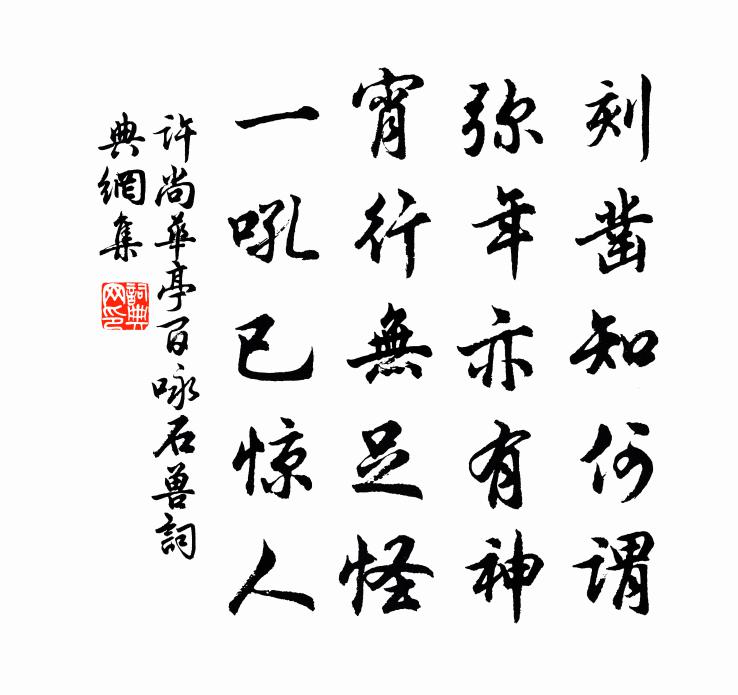 刻凿知何谓
弥年亦有神
宵行無足怪
一吼已惊人
许尚華亭百咏石兽詞
典網集
詞典
网印